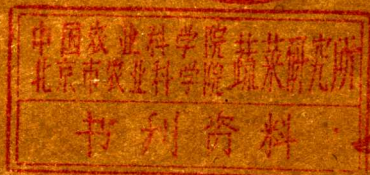 中国农业科学院
北京市农业科学院 蔬菜研究所
书刊资料